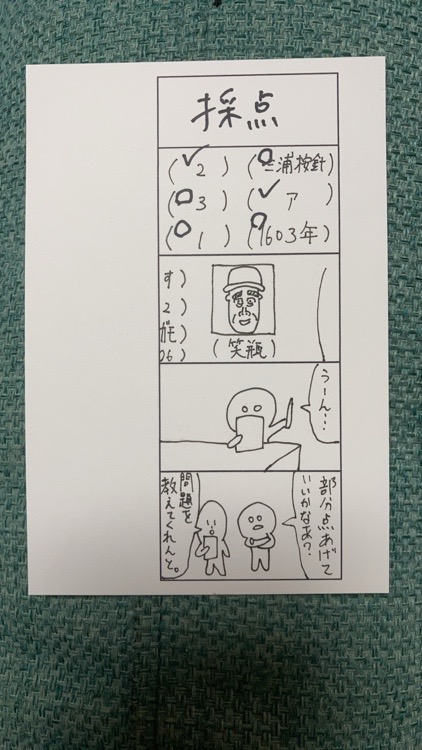 採点
( 2 ) (三浦按針)
( 3 ) ( ア )
( 1 ) (1603年)
す)
2)
ガモ)
06)
(笑瓶)
うーん…
部分点あげて
いいかなあ?
問題を
教えてくれんと。